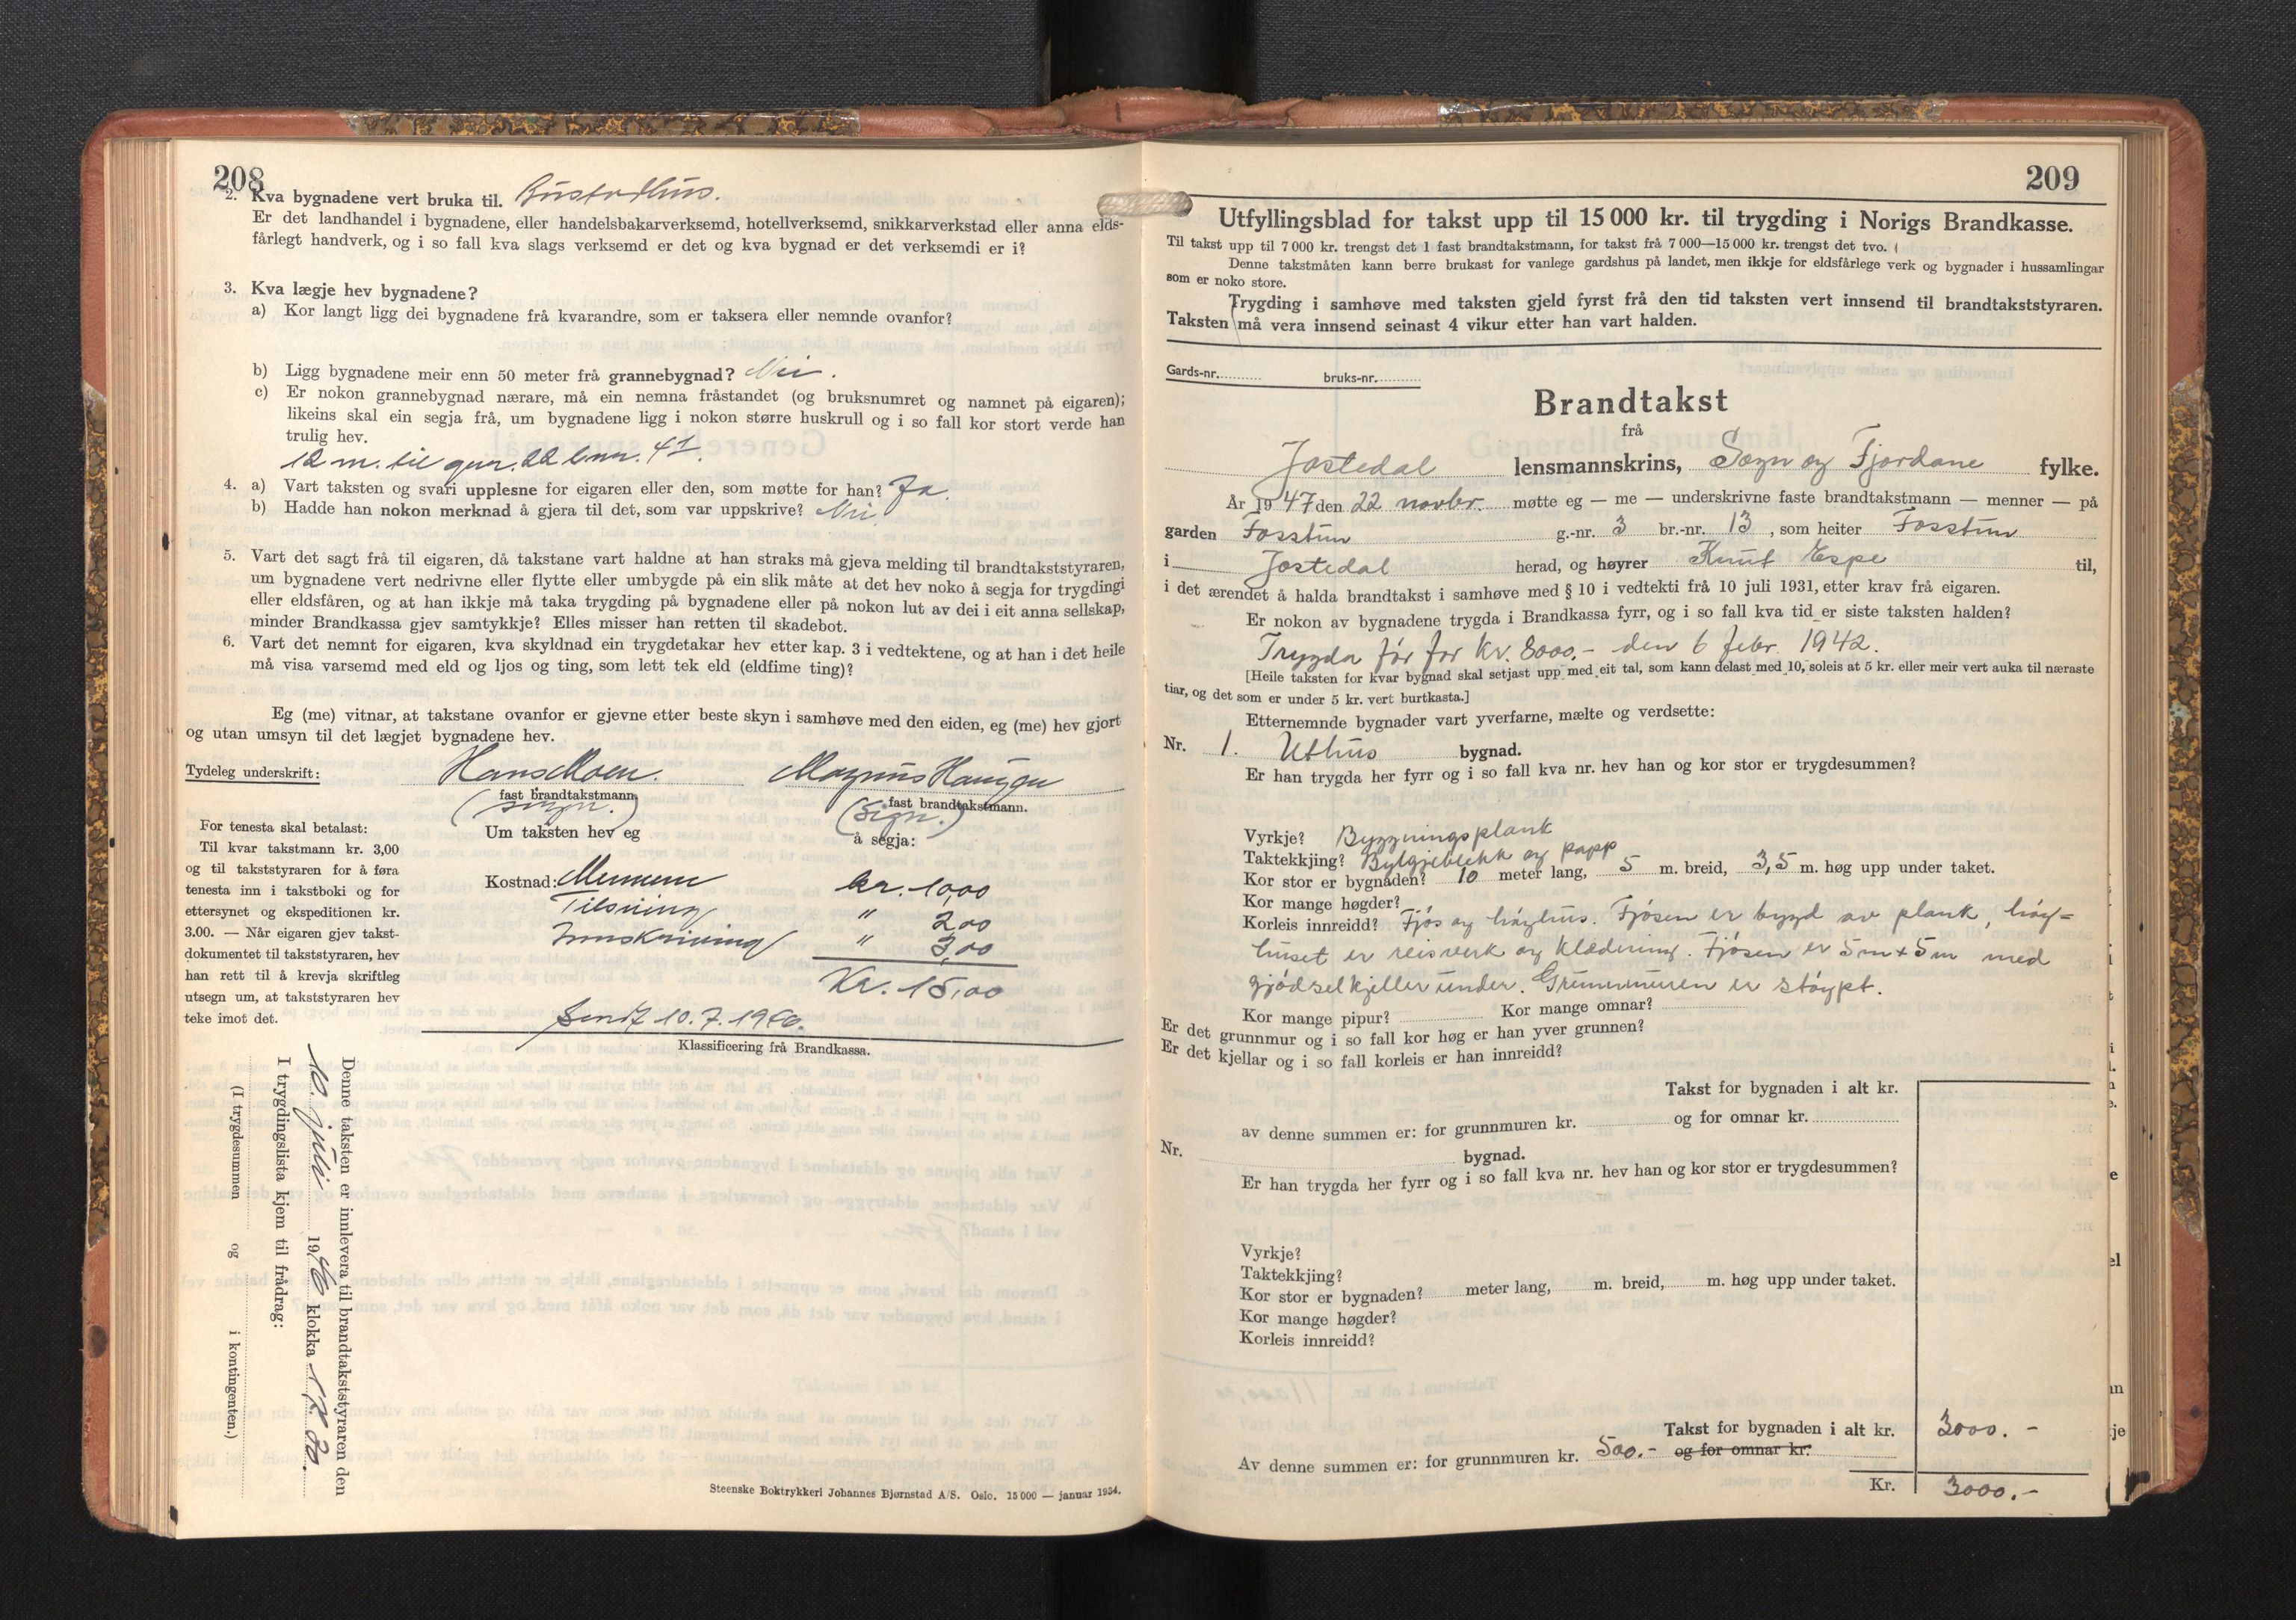 208
2. Kva bygnadene vert bruka til. Bustadhus.
Er det landhandel i bygnadene, eller handelsbakarverksemd, hotellverksemd, snikkarverkstad eller anna elds-
fårlegt handverk, og i so fall kva slags verksemd er det og kva bygnad er det verksemdi er i?
3. Kva lægje hev bygnadene?
a) Kor langt ligg dei bygnadene frå kvarandre, som er taksera eller nemnde ovanfor?
b) Ligg bygnadene meir enn 50 meter frå grannebygnad? Nei.
c) Er nokon grannebygnad nærare, må ein nemna fråstandet (og bruksnumret og namnet på eigaren);
likeins skal ein segja frå, um bygnadene ligg i nokon større huskrull og i so fall kor stort verde han
trulig hev.
12 m. til gnr. 22 bnr. 41.
4. a) Vart taksten og svari upplesne for eigaren eller den, som møtte for han? Ja.
b) Hadde han nokon merknad å gjera til det, som var uppskrive? Nei.
5. Vart det sagt frå til eigaren, då takstane vart haldne at han straks må gjeva melding til brandtakststyraren,
um bygnadene vert nedrivne eller flytte eller umbygde på ein slik måte at det hev noko å segja for trygdingi
eller eldsfåren, og at han ikkje må taka trygding på bygnadene eller på nokon lut av dei i eit anna sellskap,
minder Brandkassa gjev samtykkje? Elles misser han retten til skadebot.
6. Vart det nemnt for eigaren, kva skyldnad ein trygdetakar hev etter kap. 3 i vedtektene, og at han i det heile
må visa varsemd med eld og ljos og ting, som lett tek eld (eldfime ting)?
Eg (me) vitnar, at takstane ovanfor er gjevne etter beste skyn i samhøve med den eiden, eg (me) hev gjort
og utan umsyn til det lægjet bygnadene hev.
Tydeleg underskrift: Hans Moen. Magnus Haugen
fast brandtakstmann fast brandtakstmann.
(sign.) (sign.)
Um taksten hev eg å segja:
For tenesta skal betalast:
Til kvar takstmann kr. 3,00
og til takststyraren for å føra
tenesta inn i takstboki og for
ettersynet og ekspeditionen kr.
3.00. — Når eigaren gjev takst-
dokumentet til takststyraren, hev
han rett til å krevja skriftleg
utsegn um, at takststyraren hev
teke imot det.
Kostnad: Mennene kr. 10,00
Tilsyning " 2,00
Innskriving " 3,00
Kr. 15,00
Sendt 10.7.1946.
Klassificering frå Brandkassa.
Denne taksten er innlevera til brandtakststyraren den
10. juli 1946 klokka 17.30.
I trygdingslista kjem til frådrag:
(I trygdesummen og i kontingenten.)
Steenske Boktrykkeri Johannes Bjørnstad A/S. Oslo. 15 000 — januar 1934.
209
Utfyllingsblad for takst upp til 15 000 kr. til trygding i Norigs Brandkasse.
Til takst upp til 7 000 kr. trengst det 1 fast brandtakstmann, for takst frå 7 000—15 000 kr. trengst det tvo.
Denne takstmåten kann berre brukast for vanlege gardshus på landet, men ikkje for eldsfårlege verk og bygnader i hussamlingar
som er noko store.
Trygding i samhøve med taksten gjeld fyrst frå den tid taksten vert innsend til brandtakststyraren.
Taksten må vera innsend seinast 4 vikur etter han vart halden.
Gards-nr. bruks-nr.
Brandtakst
frå
Jostedal lensmannskrins, Sogn og Fjordane fylke.
År 1947 den 22 novbr. møtte eg — me — underskrivne faste brandtakstmann — menner — på
garden Fosstun g.-nr. 3 br.-nr. 13, som heiter Fosstun
i Jostedal herad, og høyrer Knut Espe til,
i det ærendet å halda brandtakst i samhøve med § 10 i vedtekti frå 10 juli 1931, etter krav frå eigaren.
Er nokon av bygnadene trygda i Brandkassa fyrr, og i so fall kva tid er siste taksten halden?
Trygda før for kr. 8000.- den 6 febr. 1942.
[Heile taksten for kvar bygnad skal setjast upp med eit tal, som kann delast med 10, soleis at 5 kr. eller meir vert auka til næraste
tiar, og det som er under 5 kr. vert burtkasta.]
Etternemnde bygnader vart yverfarne, mælte og verdsette:
Nr. 1. Uthus bygnad.
Er han trygda her fyrr og i so fall kva nr. hev han og kor stor er trygdesummen?
Vyrkje? Byggningsplank
Taktekkjing? Bylgjeblekk og papp
Kor stor er bygnaden? 10 meter lang, 5 m. breid, 3,5 m. høg upp under taket.
Kor mange høgder?
Korleis innreidd? Fjøs og høyhus. Fjøsen er bygd av plank, høy-
huset er reisverk og klædning. Fjøsen er 5m x 5m med
gjødselkjeller under. Grunnmuren er støypt.
Kor mange pipur? Kor mange omnar?
Er det grunnmur og i so fall kor høg er han yver grunnen?
Er det kjellar og i so fall korleis er han innreidd?
Takst for bygnaden i alt kr.
av denne summen er: for grunnmuren kr. og for omnar kr.
Nr. bygnad.
Er han trygda her fyrr og i so fall kva nr. hev han og kor stor er trygdesummen?
Vyrkje?
Taktekkjing?
Kor stor er bygnaden? meter lang, m. breid, m. høg upp under taket.
Kor mange høgder?
Korleis innreidd?
Takst for bygnaden i alt kr. 3000.-
Av denne summen er: for grunnmuren kr. 500.- og for omnar kr.
Kr. 3000.-